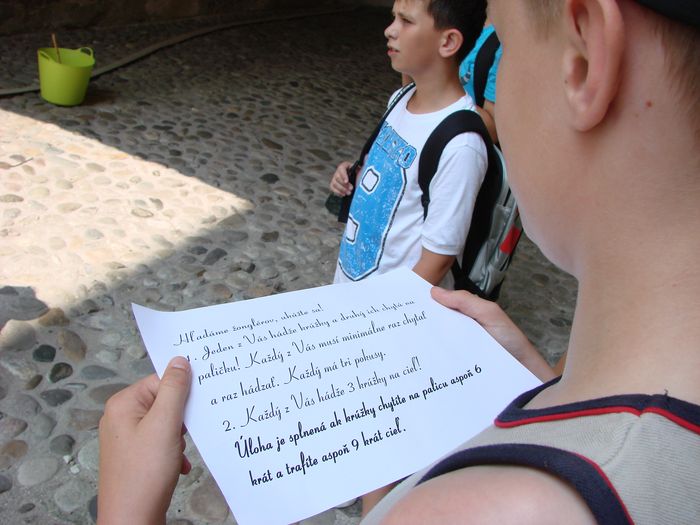 Hľadáme žonglérov, ukážte sa!
1. Jeden z Vás hádže krúžky a druhý ich chytá na
paličku! Každý z Vás musí minimálne raz chytať
a raz hádzať. Každý má tri pokusy.
2. Každý z Vás hádže 3 krúžky na cieľ!
Úloha je splnená ak krúžky chytíte na palicu aspoň 6
krát a trafíte aspoň 9 krát cieľ.
8